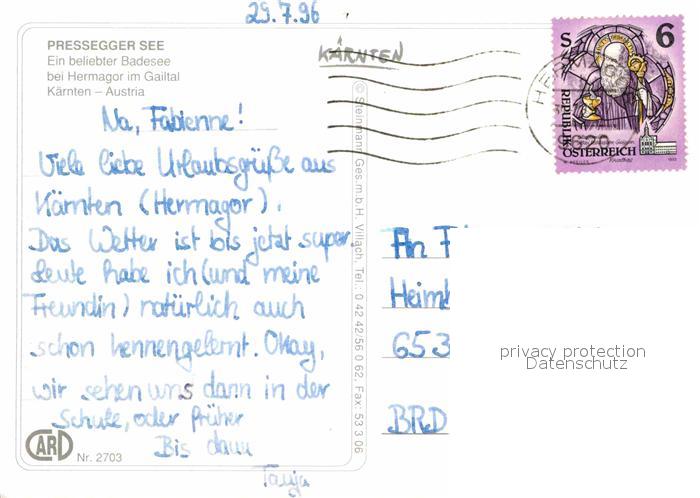 29.7.96
PRESSEGGER SEE
Ein beliebter Badesee
bei Hermagor im Gailtal
Kärnten – Austria
KÄRNTEN
Na, Fabienne!
Viele liebe Urlaubsgrüße aus
Kärnten (Hermagor).
Das Wetter ist bis jetzt super.
Leute habe ich (und meine
Freundin) natürlich auch
schon kennengelernt. Okay,
wir sehen uns dann in der
Schule, oder früher
Bis dann
Tanja
CARD
Nr. 2703
© Steinmann Ges.m.b.H. Villach, Tel.: 0 42 42/56 0 62, Fax: 53 3 06
S 6
REPUBLIK
ÖSTERREICH
An F
Heim
653
BRD
privacy protection
Datenschutz